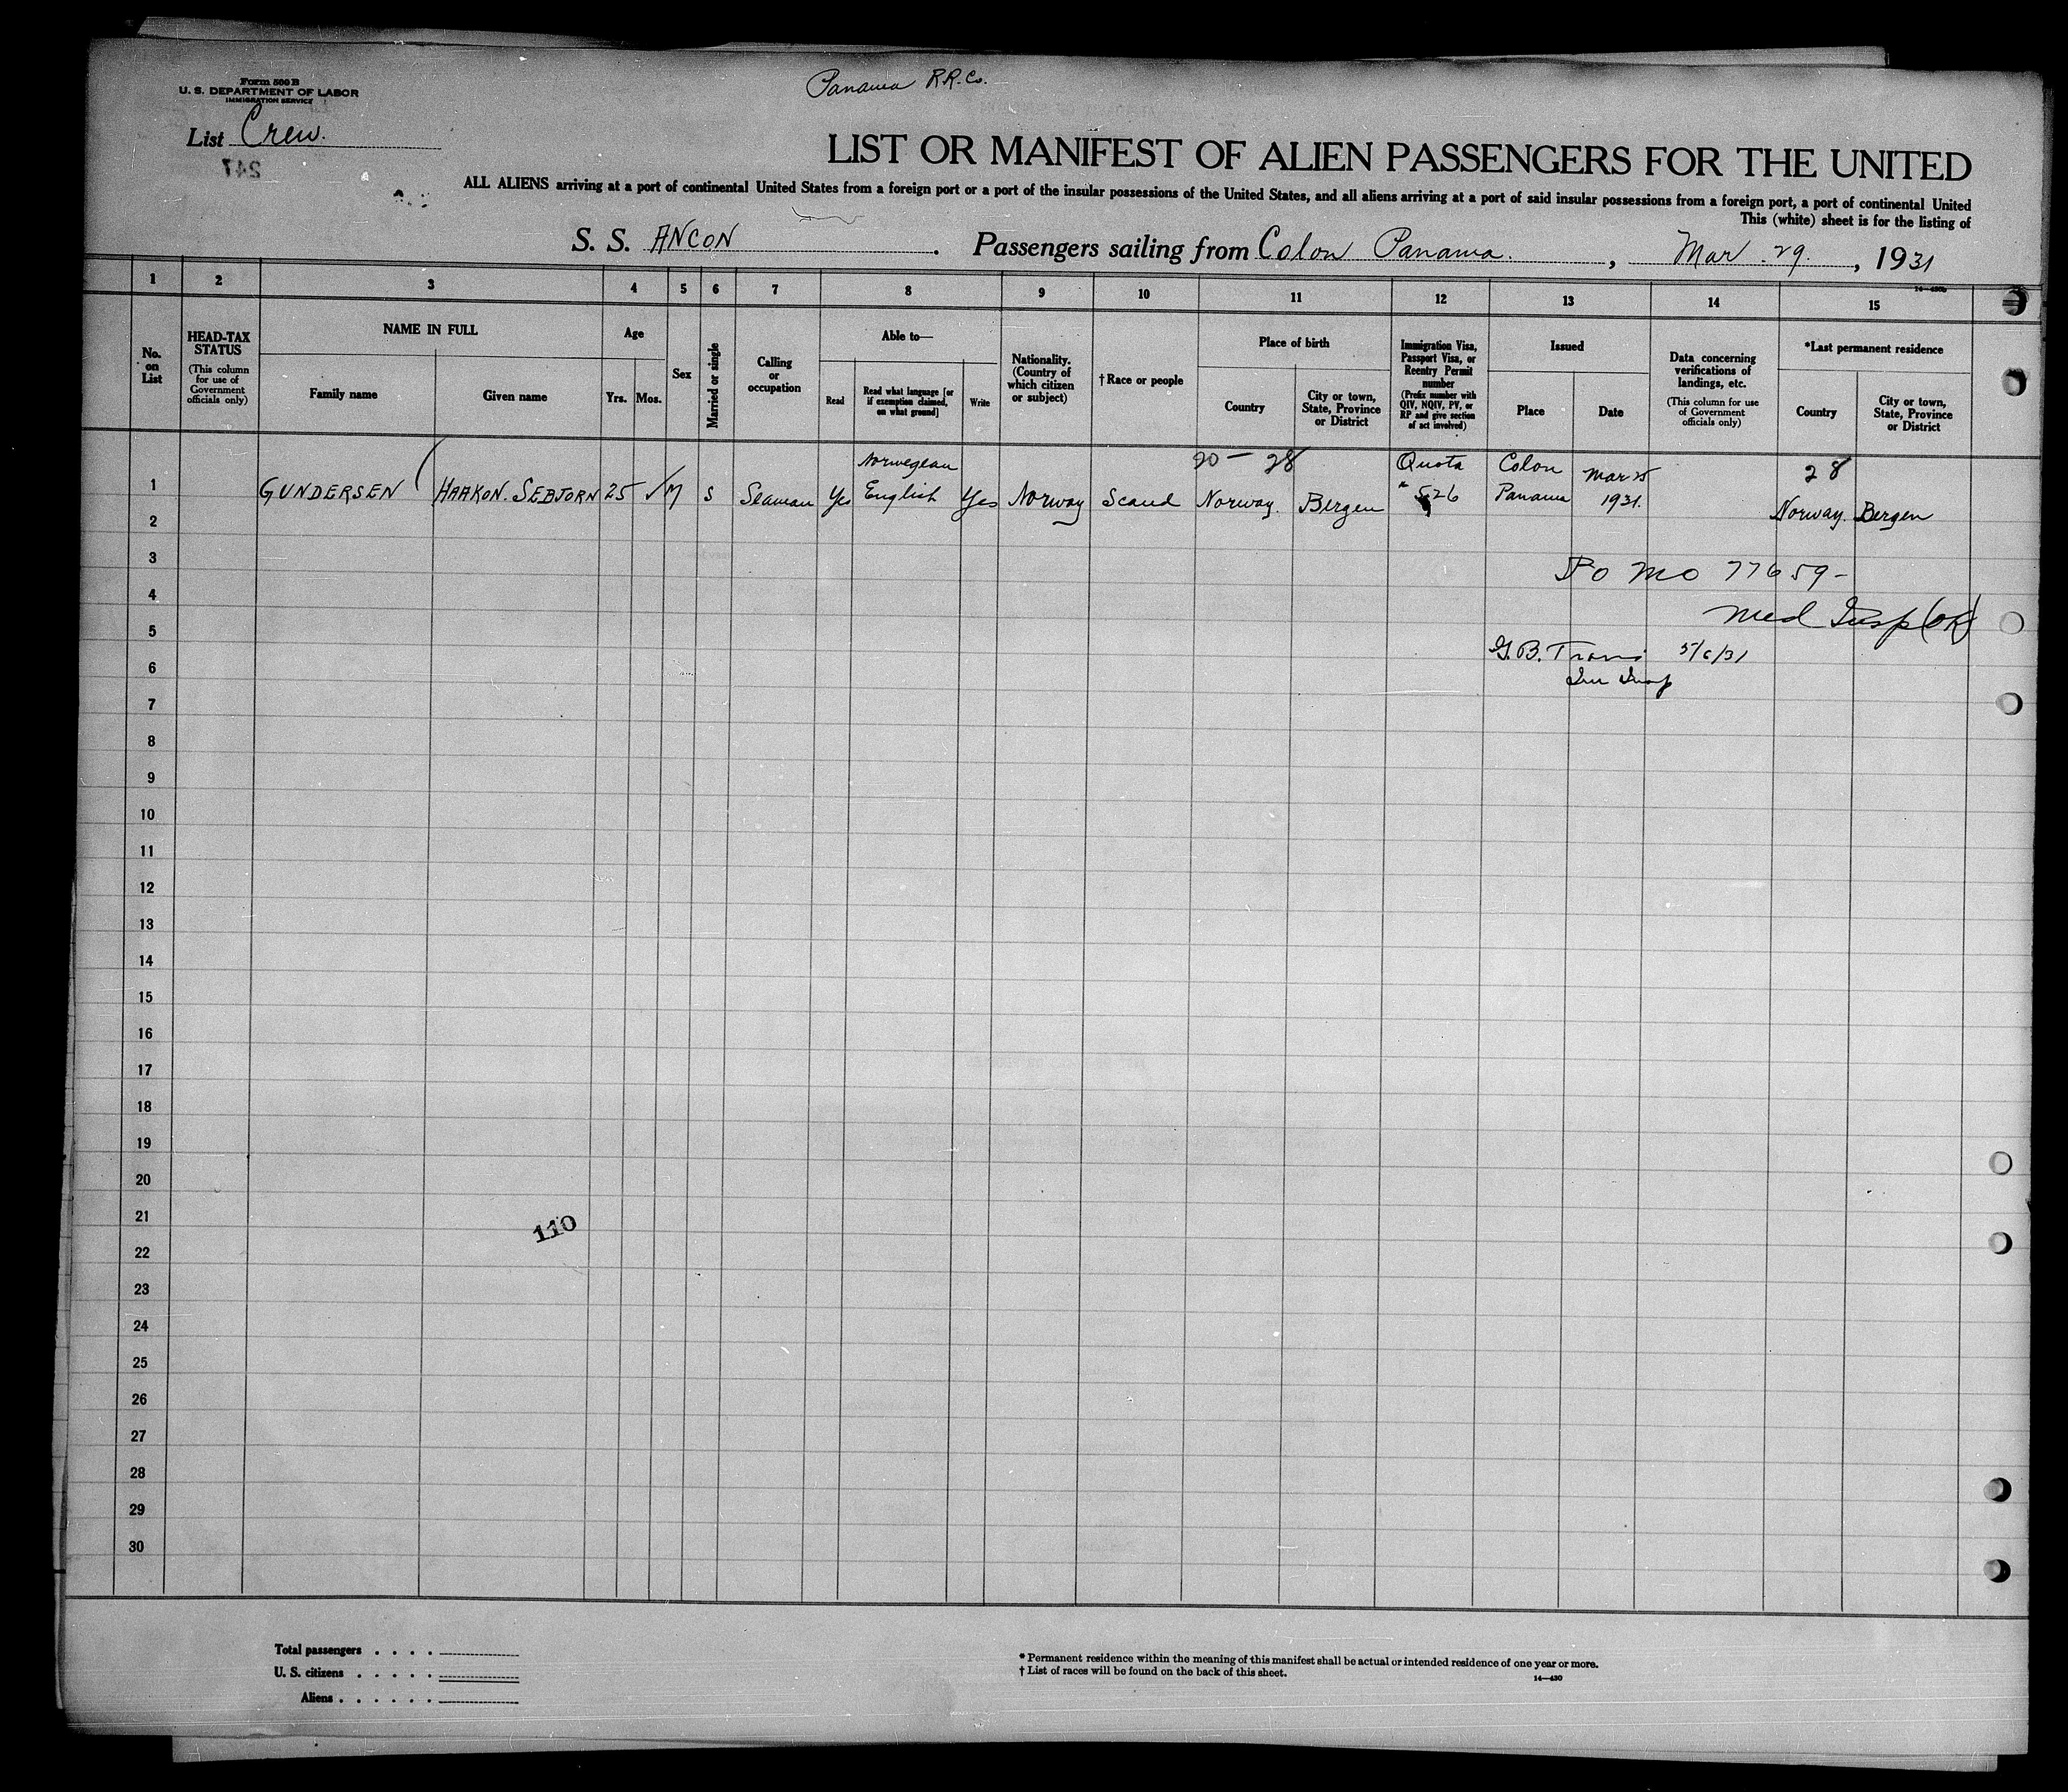 Form 500 B
U. S. DEPARTMENT OF LABOR
IMMIGRATION SERVICE
Panama R.R. Co.
List Crew.
247
LIST OR MANIFEST OF ALIEN PASSENGERS FOR THE UNITED
ALL ALIENS arriving at a port of continental United States from a foreign port or a port of the insular possessions of the United States, and all aliens arriving at a port of said insular possessions from a foreign port, a port of continental United
This (white) sheet is for the listing of
S. S. ANCON. Passengers sailing from Colon Panama., Mar. 29., 1931
1 2 3 4 5 6 7 8 9 10 11 12 13 14 15
No. on List
HEAD-TAX STATUS (This column for use of Government officials only)
NAME IN FULL
Family name
Given name
Age
Yrs.
Mos.
Sex
Married or single
Calling or occupation
Able to—
Read
Read what language [or if exemption claimed, on what ground]
Write
Nationality. (Country of which citizen or subject)
† Race or people
Place of birth
Country
City or town, State, Province or District
Immigration Visa, Passport Visa, or Reentry Permit number (Prefix number with QIV, NQIV, PV, or RP and give section of act involved)
Issued
Place
Date
Data concerning verifications of landings, etc. (This column for use of Government officials only)
*Last permanent residence
Country
City or town, State, Province or District
Norwegian 20 – 28 Quota Colon Mar 25 28
1 GUNDERSEN HAAKON. SEBJORN 25 ✓ M S Seaman Yes English Yes Norway Scand Norway. Bergen 526 Panama 1931. Norway. Bergen
2
3 Po Mo 77659-
4 Med Insp (OK)
5 G.B. 5/6/31
6
7
8
9
10
11
12
13
14
15
16
17
18
19
20
21
110
22
23
24
25
26
27
28
29
30
Total passengers
U. S. citizens
Aliens
* Permanent residence within the meaning of this manifest shall be actual or intended residence of one year or more.
† List of races will be found on the back of this sheet.
14—430